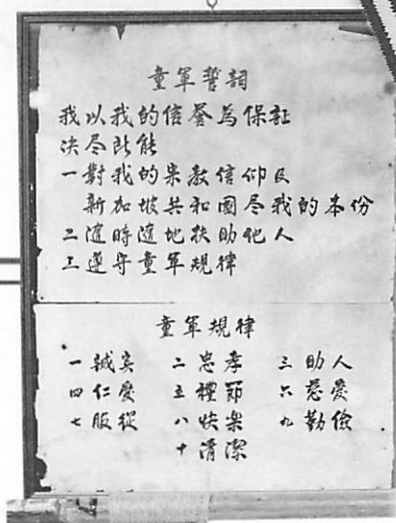 童軍誓詞
我以我的信誉為保証
决尽所能
一對我的宗教信仰及
新加坡共和國尽我的本份
二隨時隨地扶助他人
三遵守童軍規律
童軍規律
一誠实 二忠孝 三助人
四仁愛 五禮節 六慈愛
七服從 八快樂 九勤儉
十清潔